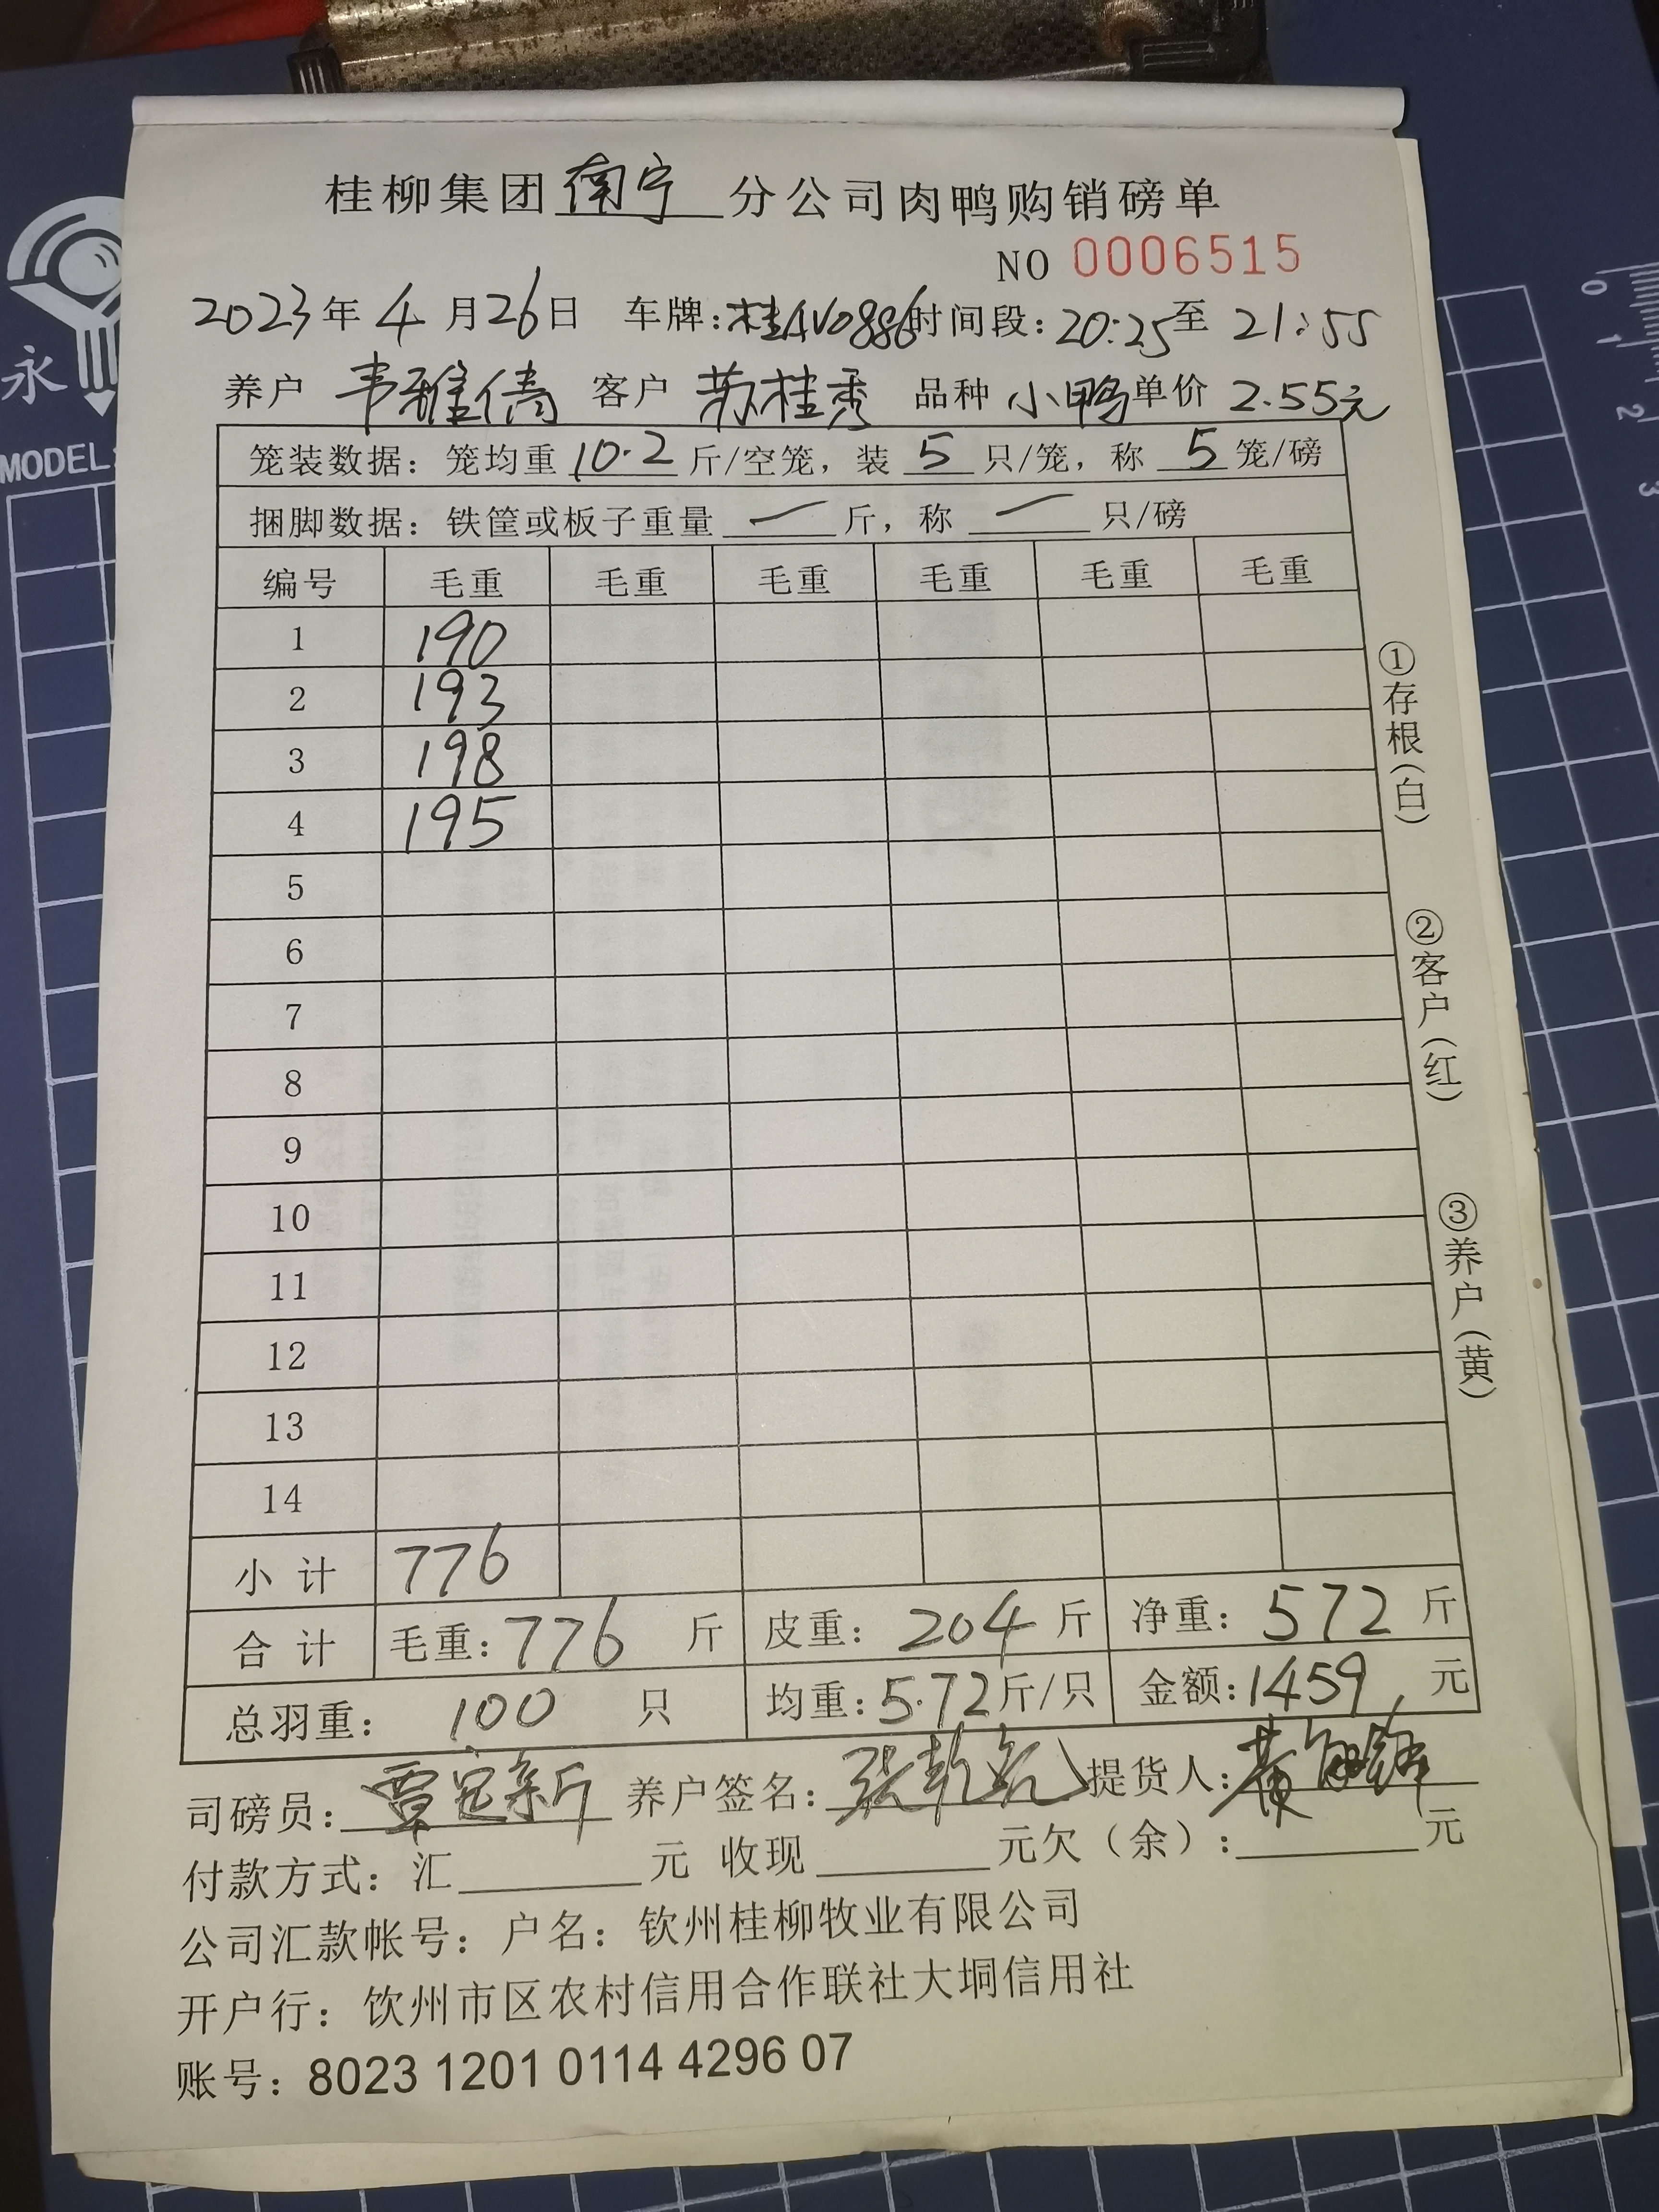 桂柳集团南宁分公司肉鸭购销磅单
NO 0006515
2023年4月26日 车牌:桂AV0886时间段:20:25至21:55
养户 韦雅倩 客户 苏桂秀 品种 小鸭 单价 2.55元
笼装数据: 笼均重10.2斤/空笼, 装5只/笼, 称5笼/磅
捆脚数据: 铁筐或板子重量 — 斤, 称 — 只/磅
编号 毛重 毛重 毛重 毛重 毛重 毛重
1 190
2 193
3 198
4 195
5
6
7
8
9
10
11
12
13
14
小计 776
合计 毛重:776斤 皮重:204斤 净重:572斤
总羽重: 100只 均重:5.72斤/只 金额:1459元
司磅员: 覃冠新 养户签名: 张乾亮 提货人:黄
付款方式: 汇 元 收现 元欠(余): 元
公司汇款帐号: 户名: 钦州桂柳牧业有限公司
开户行: 饮州市区农村信用合作联社大垌信用社
账号: 8023 1201 0114 4296 07
①存根(白)
②客户(红)
③养户(黄)
永
MODEL:
0
1
2
3